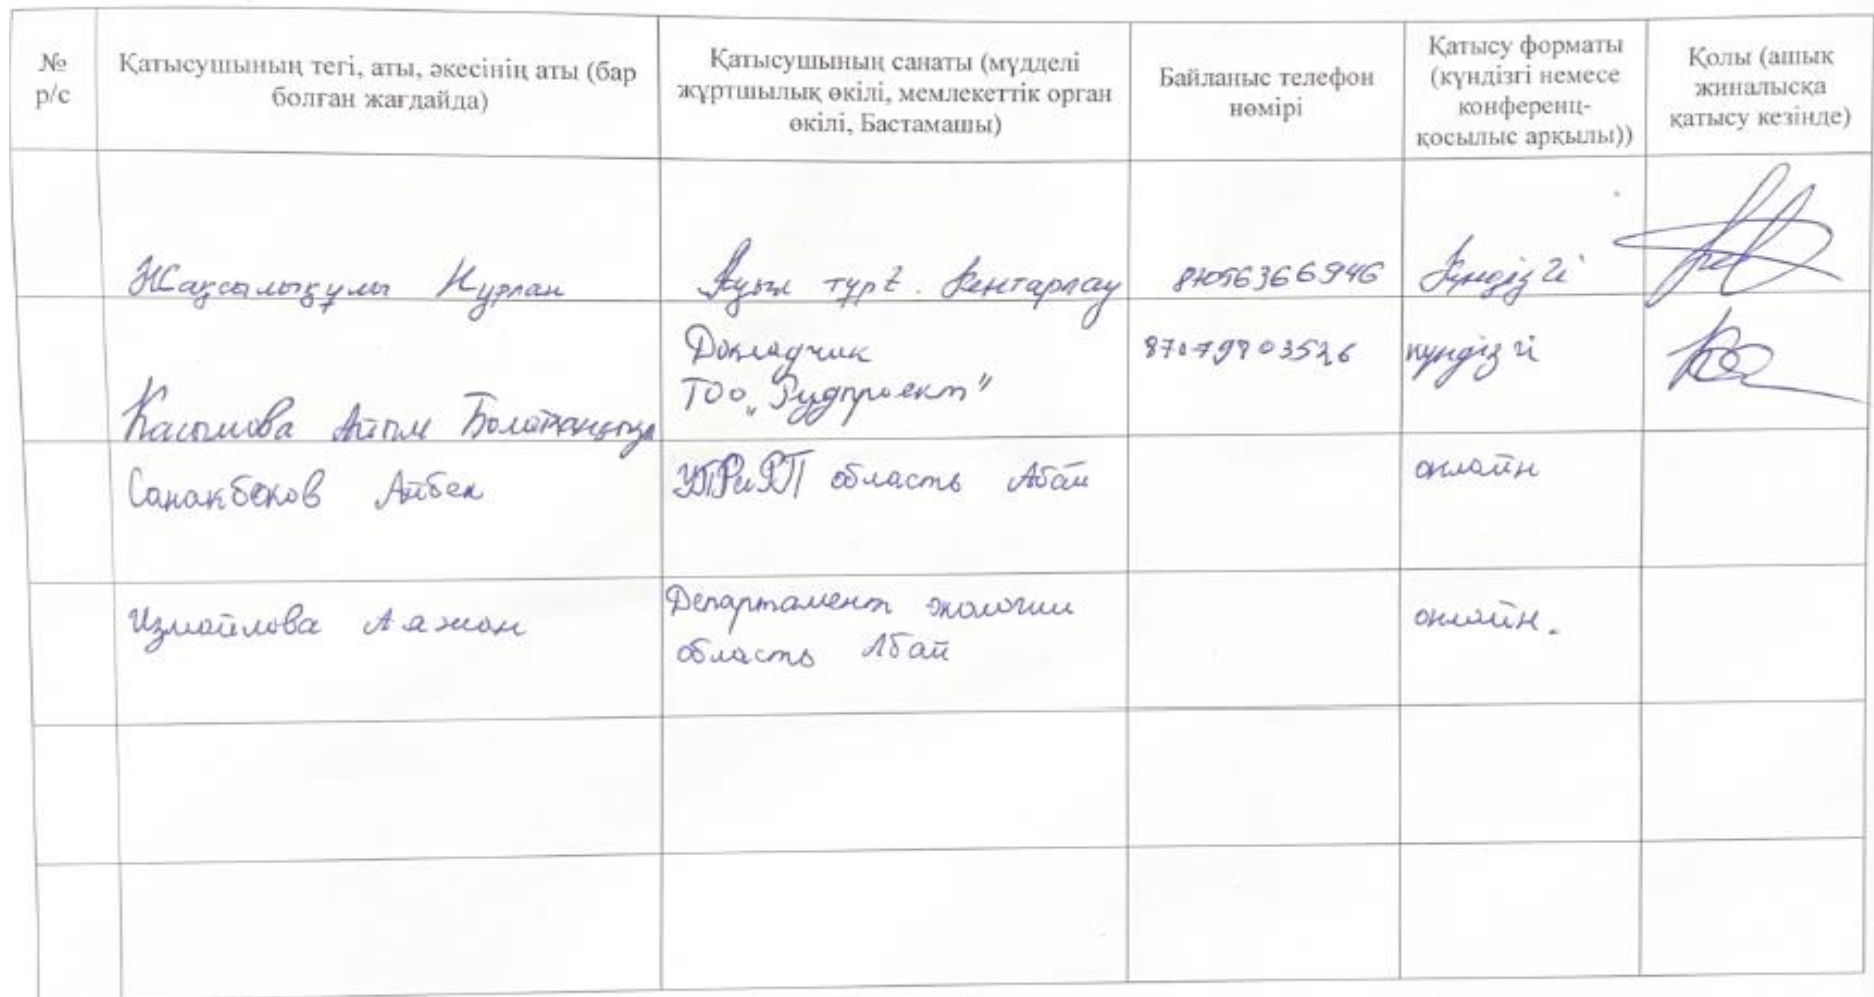 № р/с
Қатысушының тегі, аты, әкесінің аты (бар болған жағдайда)
Қатысушының санаты (мүдделі жұртшылық өкілі, мемлекеттік орган өкілі, Бастамашы)
Байланыс телефон нөмірі
Қатысу форматы (күндізгі немесе конференц-қосылыс арқылы))
Қолы (ашық жиналысқа қатысу кезінде)
Жақсылықұлы Нұрлан
Ауыл тұрғ. Кентарлау
87056366946
Күндізгі
Касымова Айым
Докладчик
ТОО „Рудпроект"
87079803526
күндізгі
Санакбеков Айбек
УПРиРП область Абай
онлайн
Измайлова Аяжан
Департамент экологии
область Абай
онлайн.